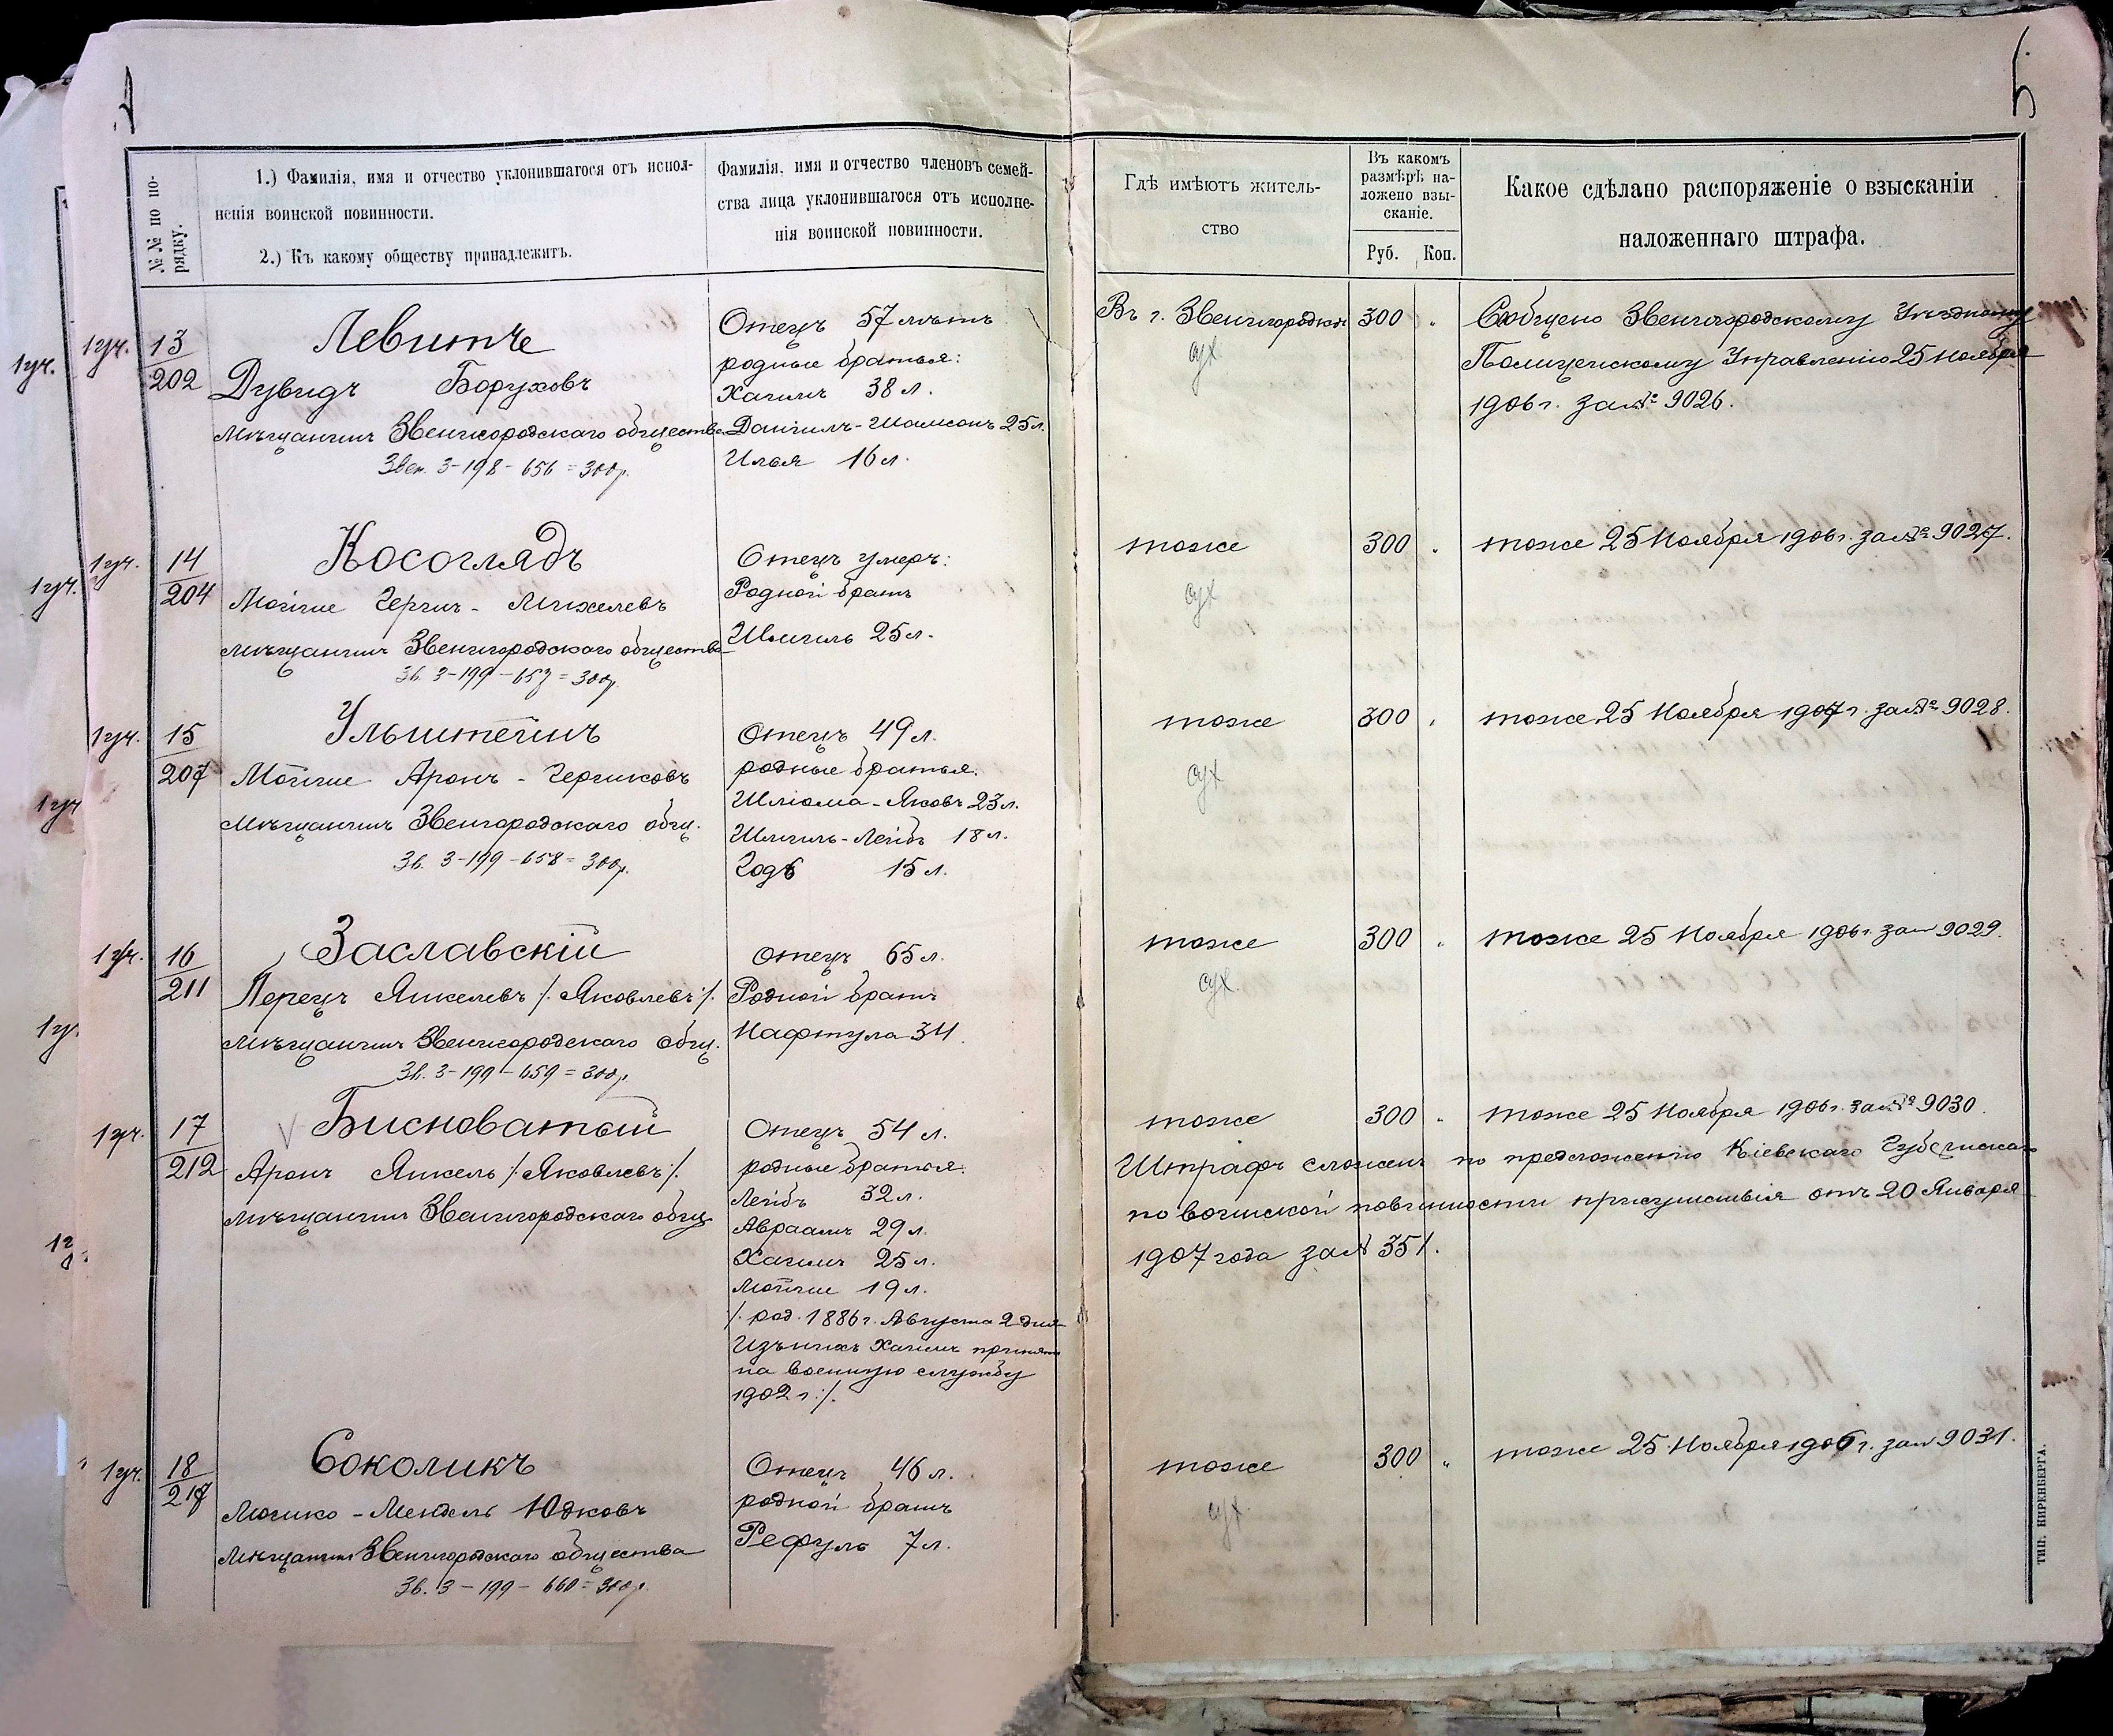 5.
№№ по по-
рядку.
1.) Фамилія, имя и отчество уклонившагося отъ испол-
ненія воинской повинности.
2.) Къ какому обществу принадлежитъ.
Фамилія, имя и отчество членовъ семей-
ства лица уклонившагося отъ исполне-
нія воинской повинности.
Гдѣ имѣютъ житель-
ство
Въ какомъ
размѣрѣ на-
ложено взы-
сканіе.
Руб. Коп.
Какое сдѣлано распоряженіе о взысканіи
наложеннаго штрафа.
1 уч.
1 уч.
13
202
Левитъ
Дувидъ Боруховъ
мѣщанинъ Звенигородскаго общества
Звен. 3-198-656=300р.
Отецъ 57 лѣтъ
родные братья:
Хаимъ 38 л.
Даніилъ-Шомсонъ 25 л.
Илья 16 л.
Въ г. Звенигородкѣ
300 "
Сообщено Звенигородскому Уѣздному
Полицейскому Управленію 25 Ноября
1906 г. за № 9026.
1 уч.
1 уч.
14
204
Косоглядъ
Мойше Герш- Михелевъ
мѣщанинъ Звенигородскаго общества
Зв. 3-199-657=300р.
Отецъ умеръ:
Родной братъ
Шмиль 25 л.
тоже
300 "
тоже 25 Ноября 1906 г. за № 9027.
1 уч.
1 уч
15
207
Ульштейнъ
Мойше Аронъ - Гершковъ
мѣщанинъ Звенигородскаго общ.
Зв. 3-199-658=300р.
Отецъ 49 л.
родные братья.
Шліома-Яковъ 23 л.
Шмиль-Лейбъ 18 л.
Годе 15 л.
тоже
300 "
тоже 25 Ноября 1907 г. за № 9028.
1 уч.
16
211
Заславскій
Перецъ Янкелевъ /. Яковлевъ /.
мѣщанинъ Звенигородскаго общ.
Зв. 3-199-659=300р.
Отецъ 65 л.
Родной братъ
Нафтула 34
тоже
300 "
тоже 25 Ноября 1906 г. за № 9029.
1 уч.
17
212
Бисноватый
Аронъ Янкель /. Яковлевъ /.
мѣщанинъ Звенигородскаго общ.
Отецъ 54 л.
родные братья:
Лейбъ 32 л.
Авраамъ 29 л.
Хаимъ 25 л.
Мойше 19 л.
/. род. 1886 г. Августа 2 дня
Изъ нихъ Хаимъ принятъ
на военную службу
1902 г. :/.
тоже
300 "
тоже 25 Ноября 1906 г. за № 9030.
Штрафъ сложенъ по предложенію Кіевскаго Губернска-
по воинской повинности присутствія отъ 20 Января
1907 года за № 351.
1 уч.
18
217
Соколикъ
Мошко-Мендель Юдковъ
мѣщанинъ Звенигородскаго общества
Зв. 3-199-660=300р.
Отецъ 46 л.
родной братъ
Рефуль 7 л.
тоже
300 "
тоже 25 Ноября 1906 г. за № 9031.
ТИП. НИРЕНБЕРГА.